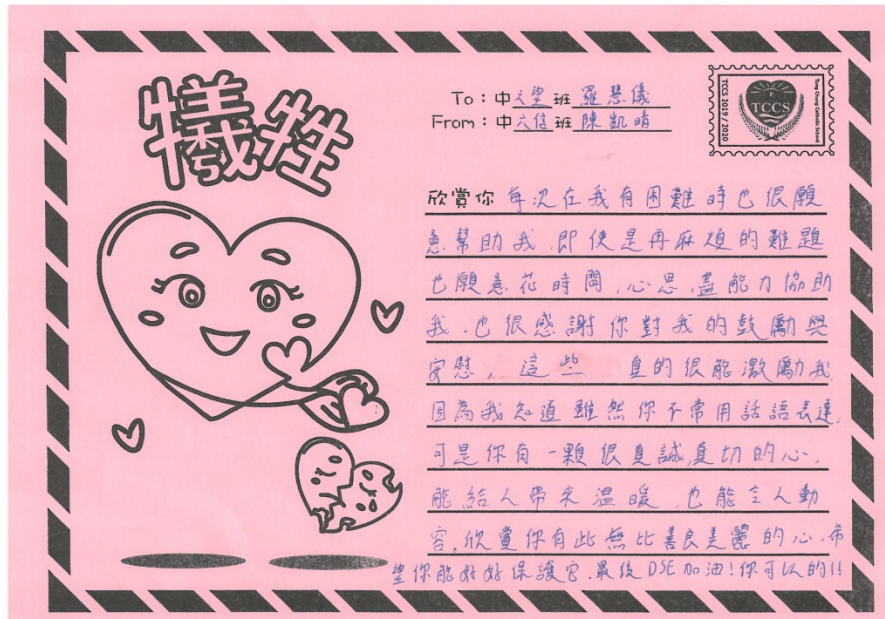 犧牲
To：中六望班 羅慧儀
From：中六信班 陳凱晴
TCCS 2019 / 2020
TCCS
Tung Chung Catholic School
欣賞你 每次在我有困難時也很願
意幫助我,即使是再麻煩的難題
也願意花時間,心思,盡能力協助
我.也很感謝你對我的鼓勵與
安慰,這些 真的很能激勵我
因為我知道雖然你不常用話語表達,
可是你有一顆很真誠,真切的心,
能給人帶來溫暖,也能令人動
容,欣賞你有此無比善良美麗的心.希
望你能好好保護它.最後DSE加油!你可以的!!